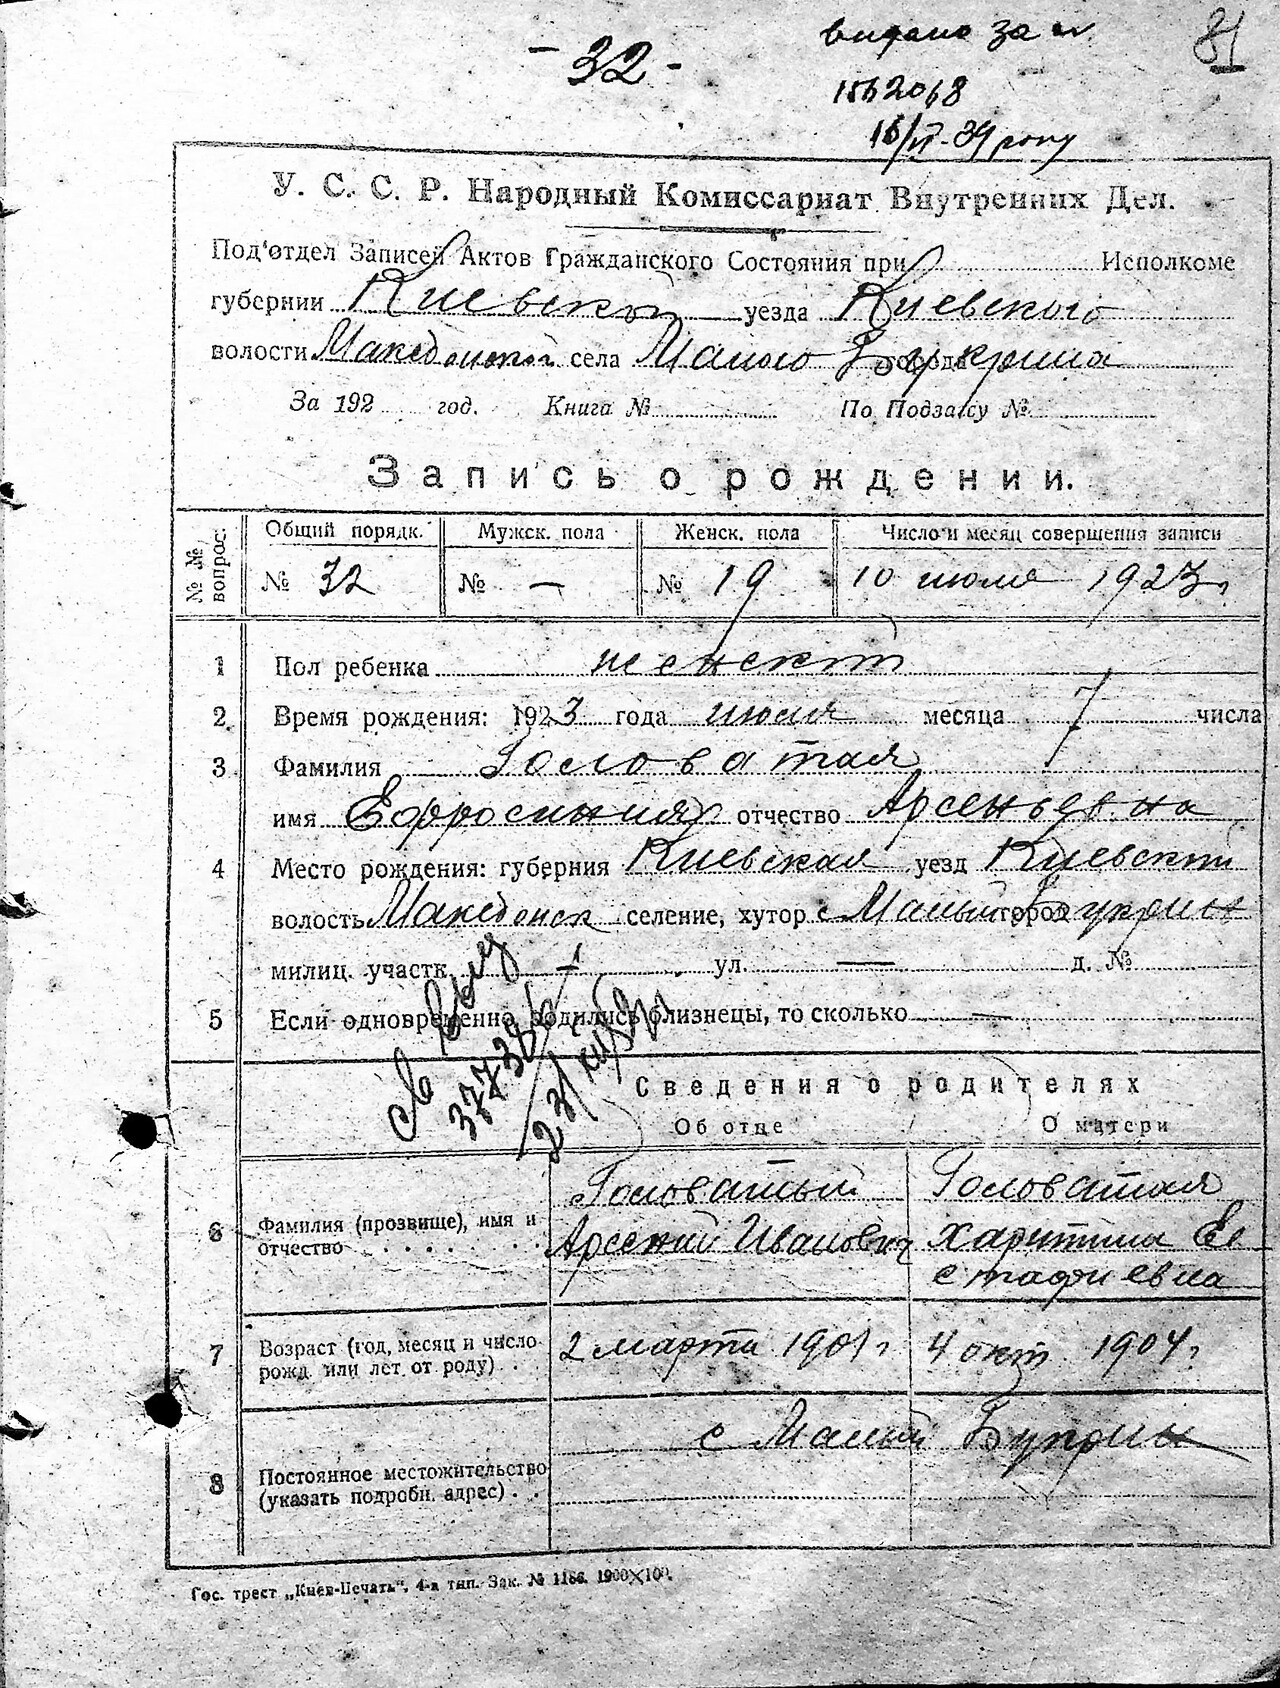 - 32 -
81
видано за №
1562068
У. С. С. Р. Народный Комиссариат Внутренних Дел.
Под'отдел Записей Актов Гражданского Состояния при Исполкоме
губернии Киевской уезда Киевского
волости Македонской села Малого Букрина города
За 192 год. Книга № По Подзагсу №
Запись о рождении.
№ № вопрос. Общий порядк. Мужск. пола Женск. пола Число и месяц совершения записи
№ 32 № — № 19 10 июля 1923 г.
1 Пол ребенка женский
2 Время рождения: 1923 года июля месяца 7 числа
3 Фамилия Головатая
имя Ефросиния отчество Арсеньевна
4 Место рождения: губерния Киевская уезд Киевский
волость Македонск селение, хутор с Малый город Букрин
милиц. участк. — ул. — д. №
5 Если одновременно родились близнецы, то сколько —
Сведения о родителях
Об отце О матери
Головатый Головатая
6 Фамилия (прозвище), имя и
отчество Арсений Иванович Харитина Ев
стафиевна
7 Возраст (год, месяц и число
рожд. или лет от роду) 2 марта 1901 г 4 окт 1904 г.
с Малый Букрин
8 Постоянное местожительство
(указать подробн. адрес)
Гос. трест „Киев-Печать“. 4-я тип. Зак. № 1186. 1900×100.